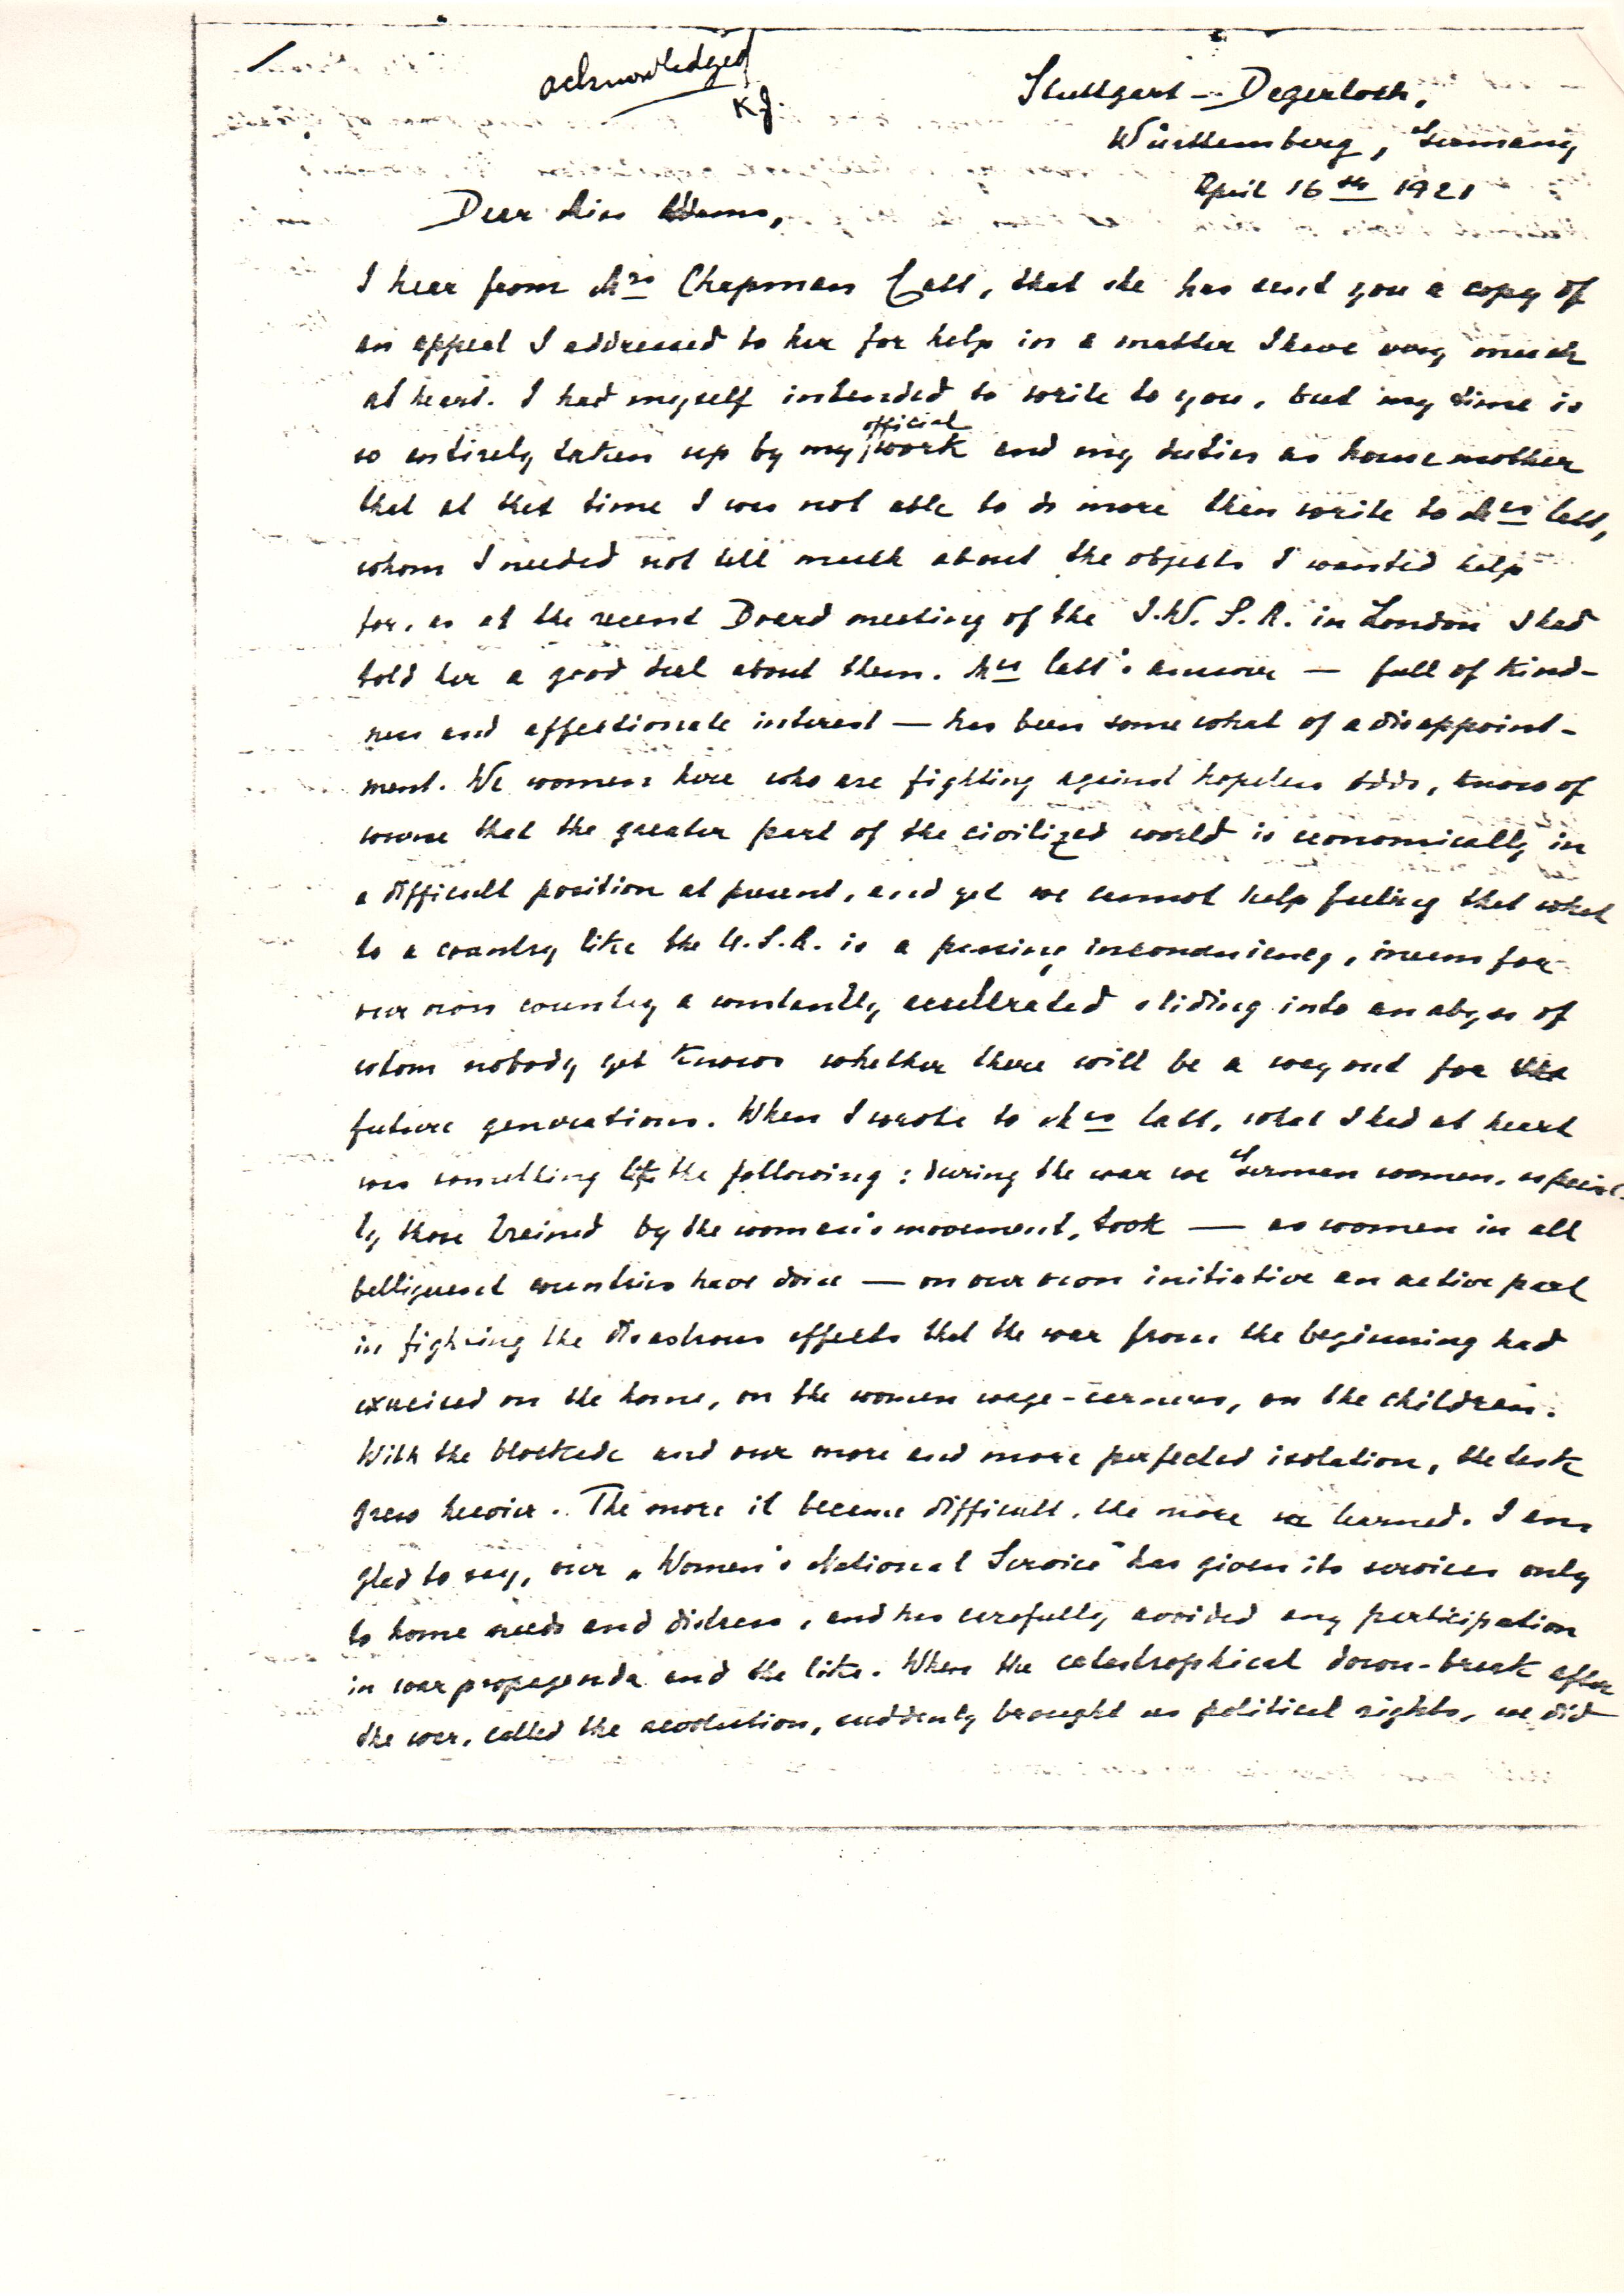 acknowledged
K.J.
Stuttgart - Degerloch,
Württemberg, Germany
April 16th 1921
Dear Miss Addams,
I hear from Mrs Chapman Catt, that she has send you a copy of
an appeal I addressed to her for help in a matter I have very much
at heart. I had myself intended to write to you, but my time is
so entirely taken up by my official work and my duties as house mother
that at that time I was not able to do more than write to Mrs Catt,
whom I needed not tell much about the objects I wanted help
for, as at the recent Board meeting of the I.W.S.A. in London I had
told her a good deal about them. Mrs Catt's answer — full of kind-
ness and affectionate interest — has been somewhat of a disappoint-
ment. We women here who are fighting against hopeless odds, know of
course that the greater part of the civilized world is economically in
a difficult position at present, and yet we cannot help feeling that what
to a country like the U.S.A. is a passing inconveniency, means for
our own country a constantly accellrated sliding into an abyss of
whom nobody yet knows whether there will be a way out for
future generations. When I wrote to Mrs Catt, what I had at heart
was something like the following: during the war we German women, especial-
ly those trained by the woman's movement, took — as women in all
belligerent countries have done — on our own initiative an active part
in fighting the disastrous effects that the war from the beginning had
exercised on the home, on the women wage-earners, on the children.
With the blockade and our more and more perfected isolation, the task
grew heavier. The more it became difficult, the more we learned. I am
glad to say, our „Women's National Service" has given its services only
to home needs and distress, and has carefully avoided any participation
in war propaganda and the like. When the catastrophical down-break after
the war, called the revolution, suddenly brought us political rights, we did